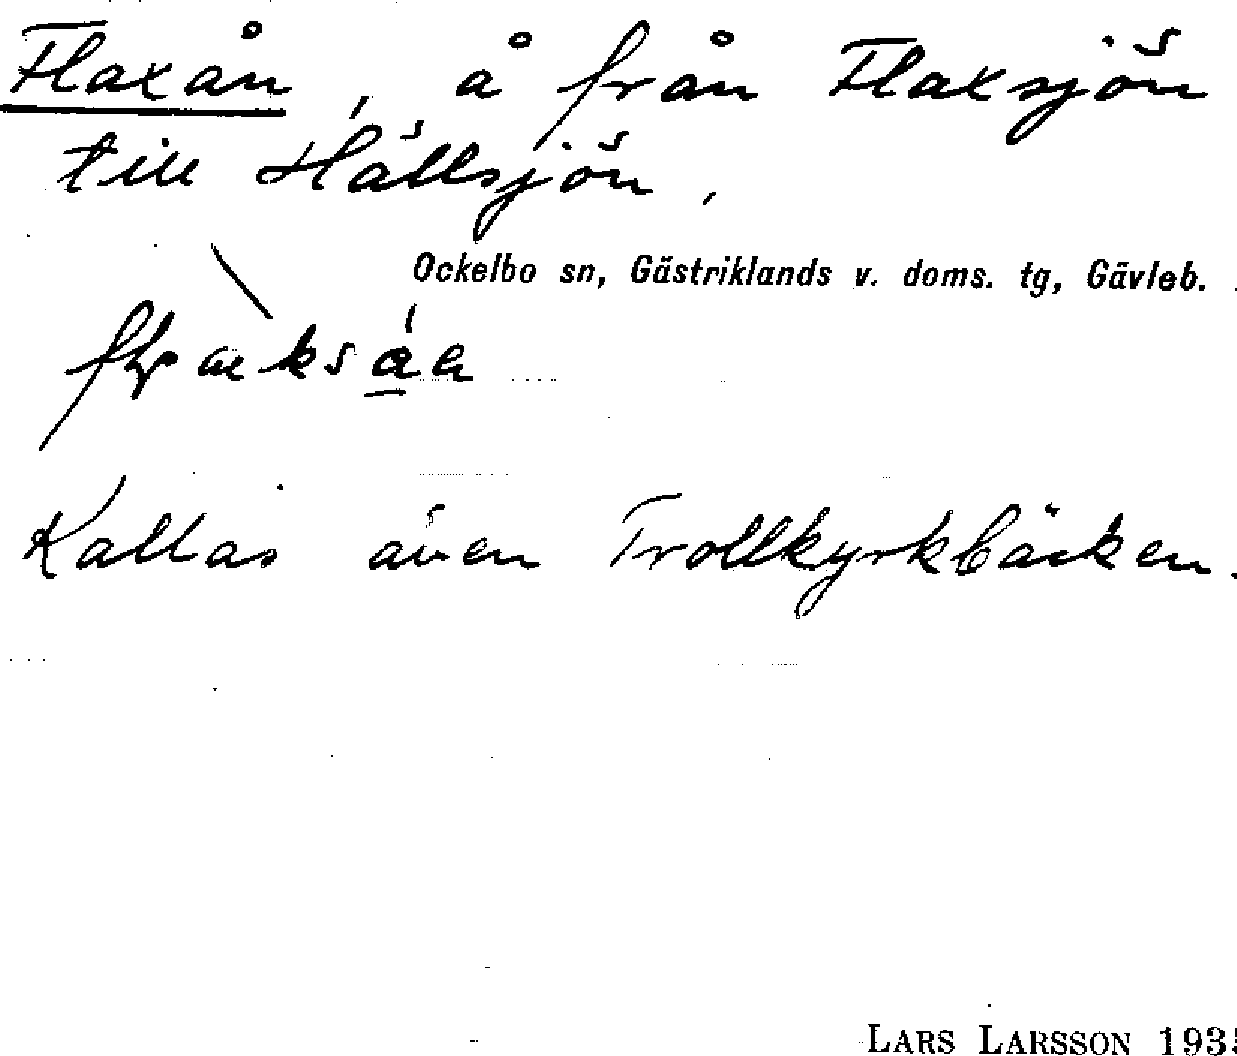 Flaxån, å från Flaxsjön
till Hällsjön.
Ockelbo sn, Gästriklands v. doms. tg, Gävleb.
Kallas även Trollkyrkbäcken.
LARS LARSSON